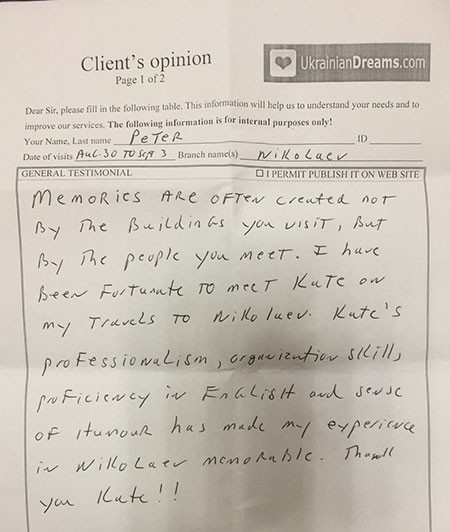 Client's opinion
Page 1 of 2
UkrainianDreams.com
Dear Sir, please fill in the following table. This information will help us to understand your needs and to
improve our services. The following information is for internal purposes only!
Your Name, Last name PeTeR ID
Date of visits AuG.30 TO Sep 3 Branch name(s) NiKoLaev
GENERAL TESTIMONIAL ☐ I PERMIT PUBLISH IT ON WEB SITE
Memories Are often created not
By The Buildings you visit, But
By The people you meet. I have
Been Fortunate To meet Kate on
my Travels To Nikolaev. Kate's
professionalism, organization skills,
proficiency in English and sense
of Humour has made my experience
in Nikolaev memorable. Thank
you Kate!!